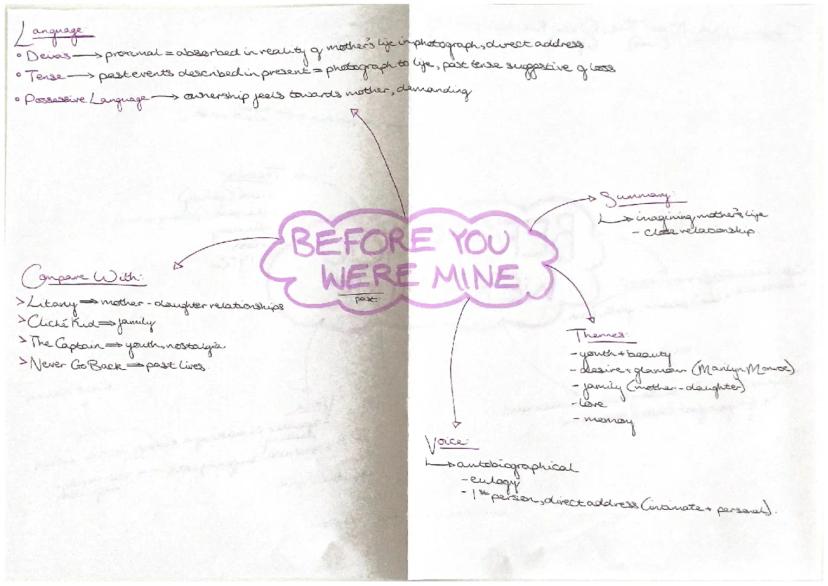 Language
• Deixis → proximal = absorbed in reality of mother's life in photograph, direct address
• Tense → past events described in present = photograph to life, past tense suggestive of loss
• Possessive Language → ownership feels towards mother, demanding
BEFORE YOU
WERE MINE
past
Summary:
↳ imagining mother's life
- close relationship
Compare With:
> Litany ⇒ mother-daughter relationships
> Cliché Kid ⇒ family
> The Captain ⇒ youth, nostalgia
> Never Go Back ⇒ past lives
Themes:
- youth + beauty
- desire + glamour (Marilyn Monroe)
- family (mother-daughter)
- love
- memory
Voice:
↳ autobiographical
- eulogy
- 1st person, direct address (intimate + personal).